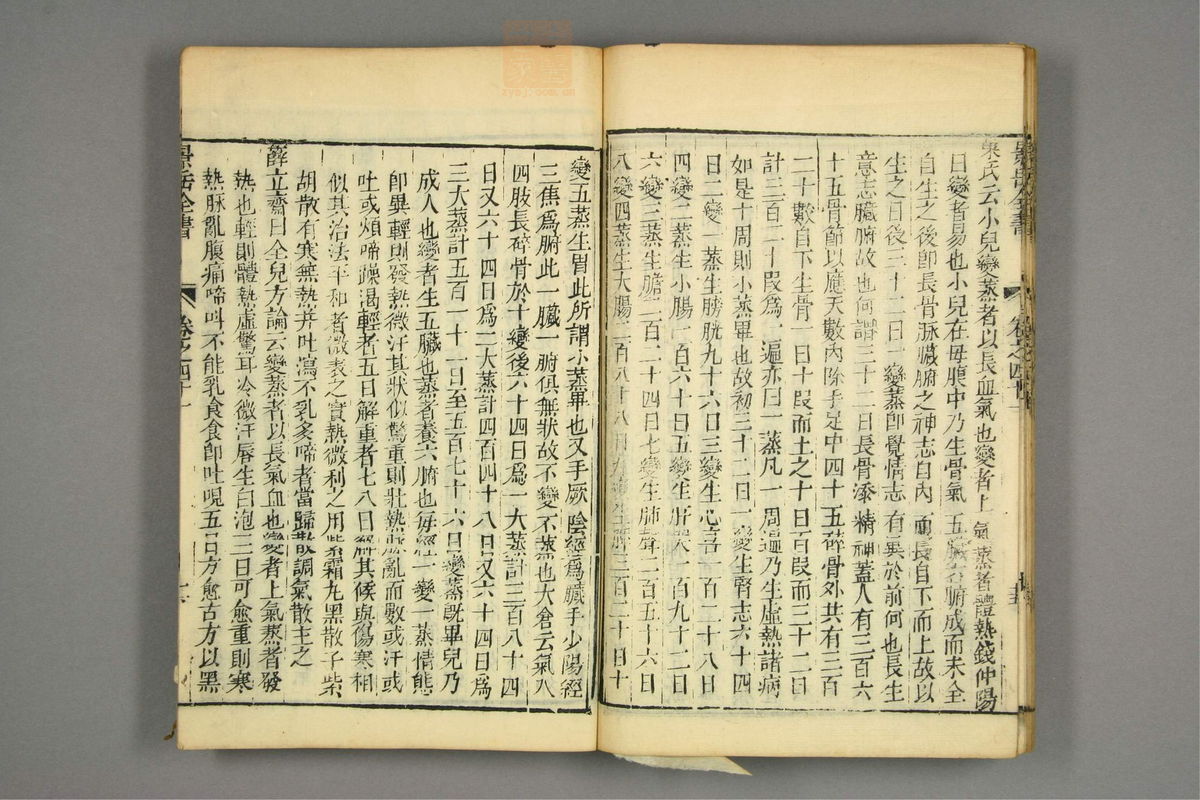 巢氏云小兒變蒸者以長血氣也變者上氣蒸者體熱錢仲陽
曰變者易也小兒在母腹中乃生骨氣五臟六腑成而未全
自生之後即長骨脉臟腑之神志自內而長自下而上故以
生之日後三十二日一變蒸即覺情志有異於前何也長生
意志臟腑故也何謂三十二日長骨添精神蓋人有三百六
十五骨節以應天數內除手足中四十五碎骨外共有三百
二十數自下生骨一日十段而上之十日百段而三十二日
計三百二十段爲一遍亦曰一蒸凡一周遍乃生虛熱諸病
如是十周則小蒸畢也故初三十二日一變生腎志六十四
日二變一蒸生膀胱九十六日三變生心喜一百二十八日
四變二蒸生小腸一百六十日五變生肝哭一百九十二日
六變三蒸生膽二百二十四日七變生肺聲二百五十六日
八變四蒸生大腸二百八十八日九變生脾三百二十日十
變五蒸生胃此所謂小蒸畢也又手厥陰經爲臟手少陽經
三焦爲腑此一臟一腑俱無狀故不變不蒸也大倉云氣入
四肢長碎骨於十變後六十四日爲一大蒸計三百八十四
日又六十四日爲二大蒸計四百四十八日又六十四日爲
三大蒸計五百一十二日至五百七十六日變蒸既畢兒乃
成人也變者生五臟也蒸者養六腑也每經一變一蒸情態
即異輕則發熱微汗其狀似驚重則壯熱脉亂而數或汗或
吐或煩啼躁渴輕者五日解重者七八日解其候與傷寒相
似其治法平和者微表之實熱微利之用紫霜丸黑散子柴
胡散有寒無熱并吐瀉不乳多啼者當歸散調氣散主之
薛立齋曰全兒方論云變蒸者以長氣血也變者上氣蒸者發
熱也輕則體熱虛驚耳冷微汗唇生白泡三日可愈重則寒
熱脉亂腹痛啼叫不能乳食食即吐哯五日方愈古方以黑
景岳全書
卷之四十一